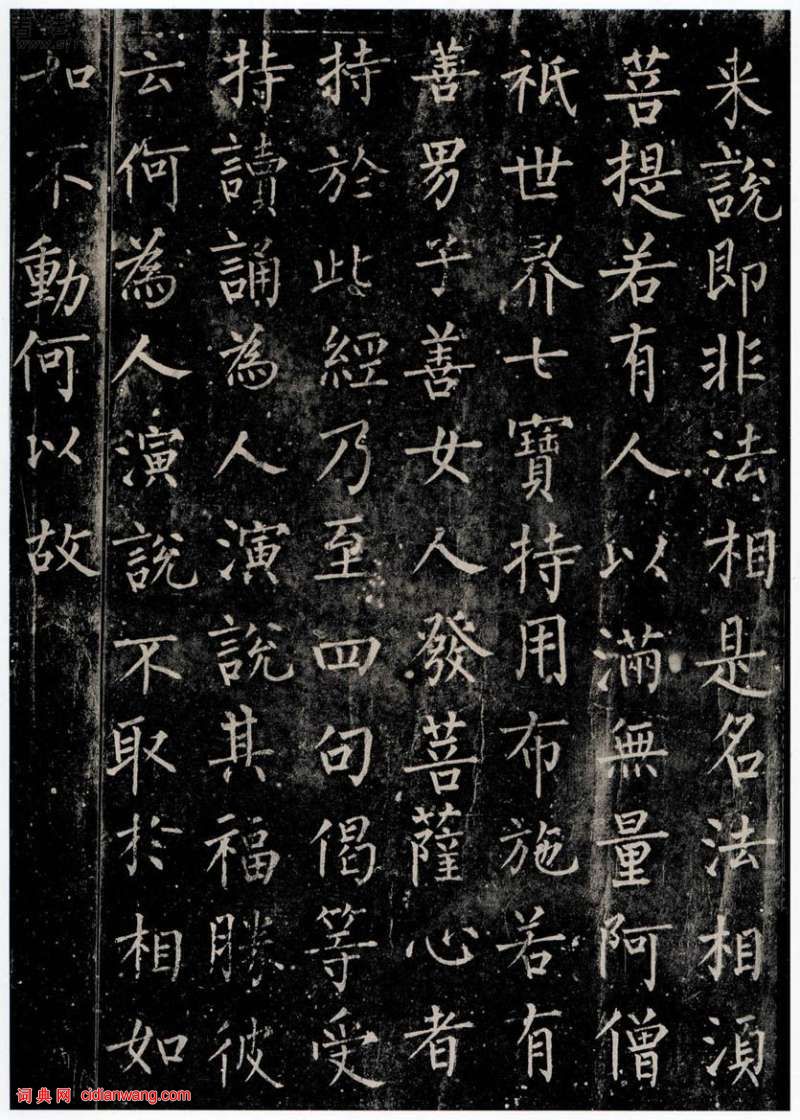 来說即非法相是名法相湏
菩提若有人以滿無量阿僧
祇世界七寶持用布施若有
善男子善女人發菩薩心者
持於此經乃至四句偈等受
持讀誦為人演說其福勝彼
云何為人演說不取於相如
如不動何以故
词典网 cidianwang.com